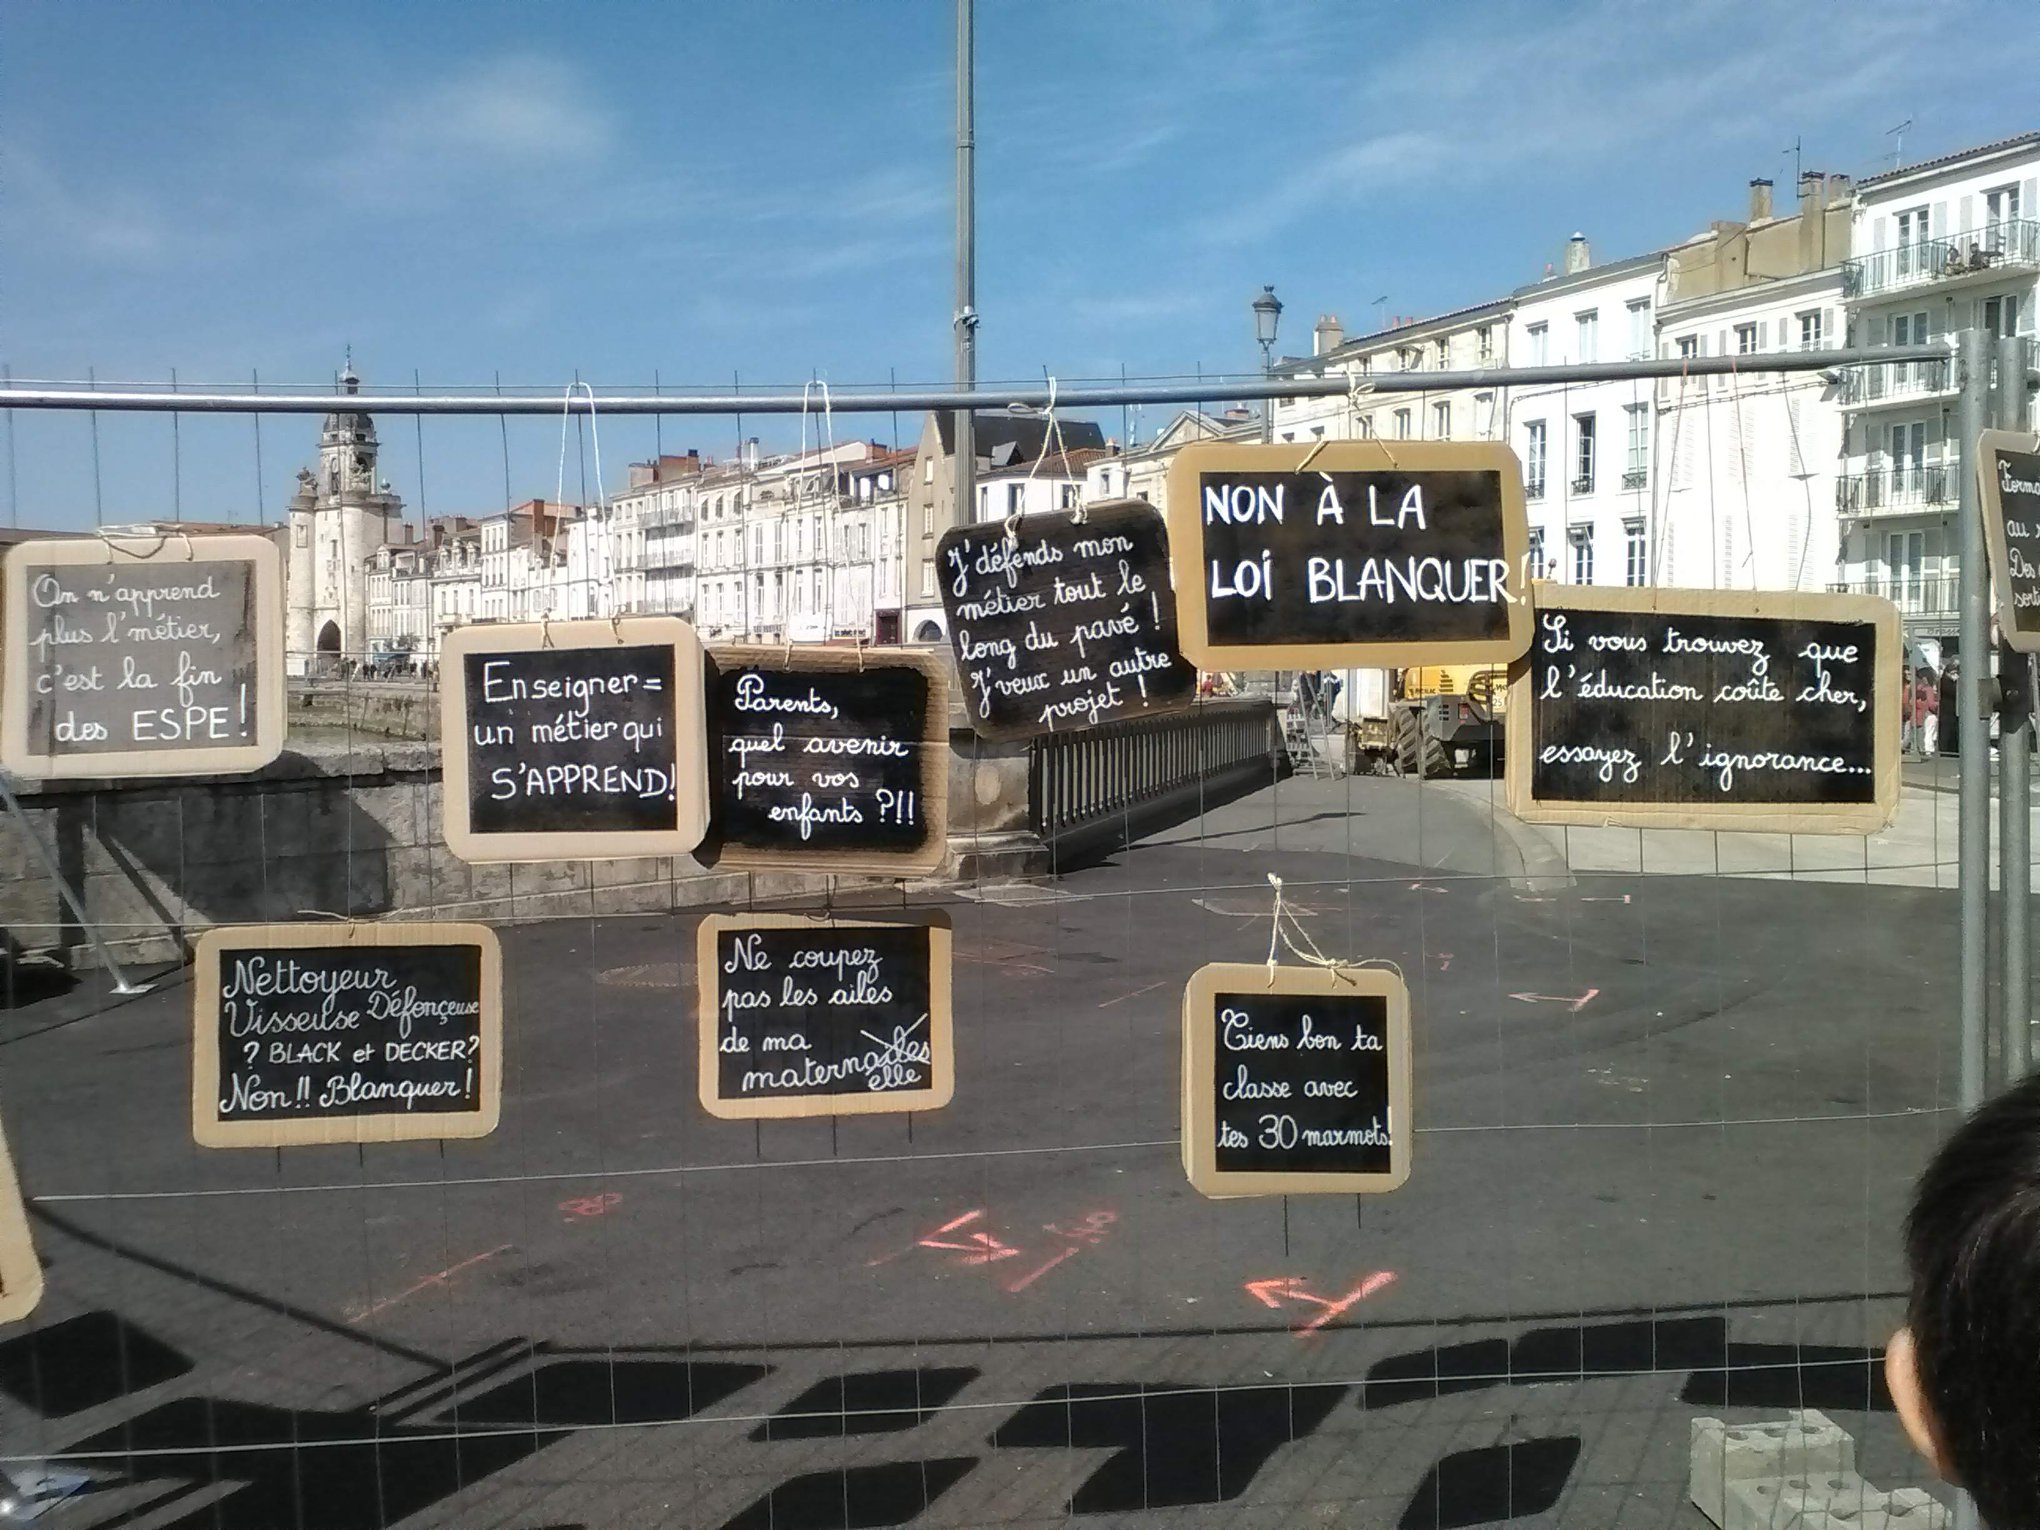 On n'apprend
plus l'métier,
c'est la fin
des ESPE!
Enseigner =
un métier qui
S'APPREND!
Parents,
quel avenir
pour vos
enfants ?!!
J'défends mon
métier tout le
long du pavé !
J'veux un autre
projet !
NON À LA
LOI BLANQUER!
Si vous trouvez que
l'éducation coûte cher,
essayez l'ignorance...
au
Des
Nettoyeur
Visseuse Défonçeuse
? BLACK et DECKER?
Non!! Blanquer!
Ne coupez
pas les ailes
de ma
maternailes
elle
Tiens bon ta
classe avec
tes 30 marmots!